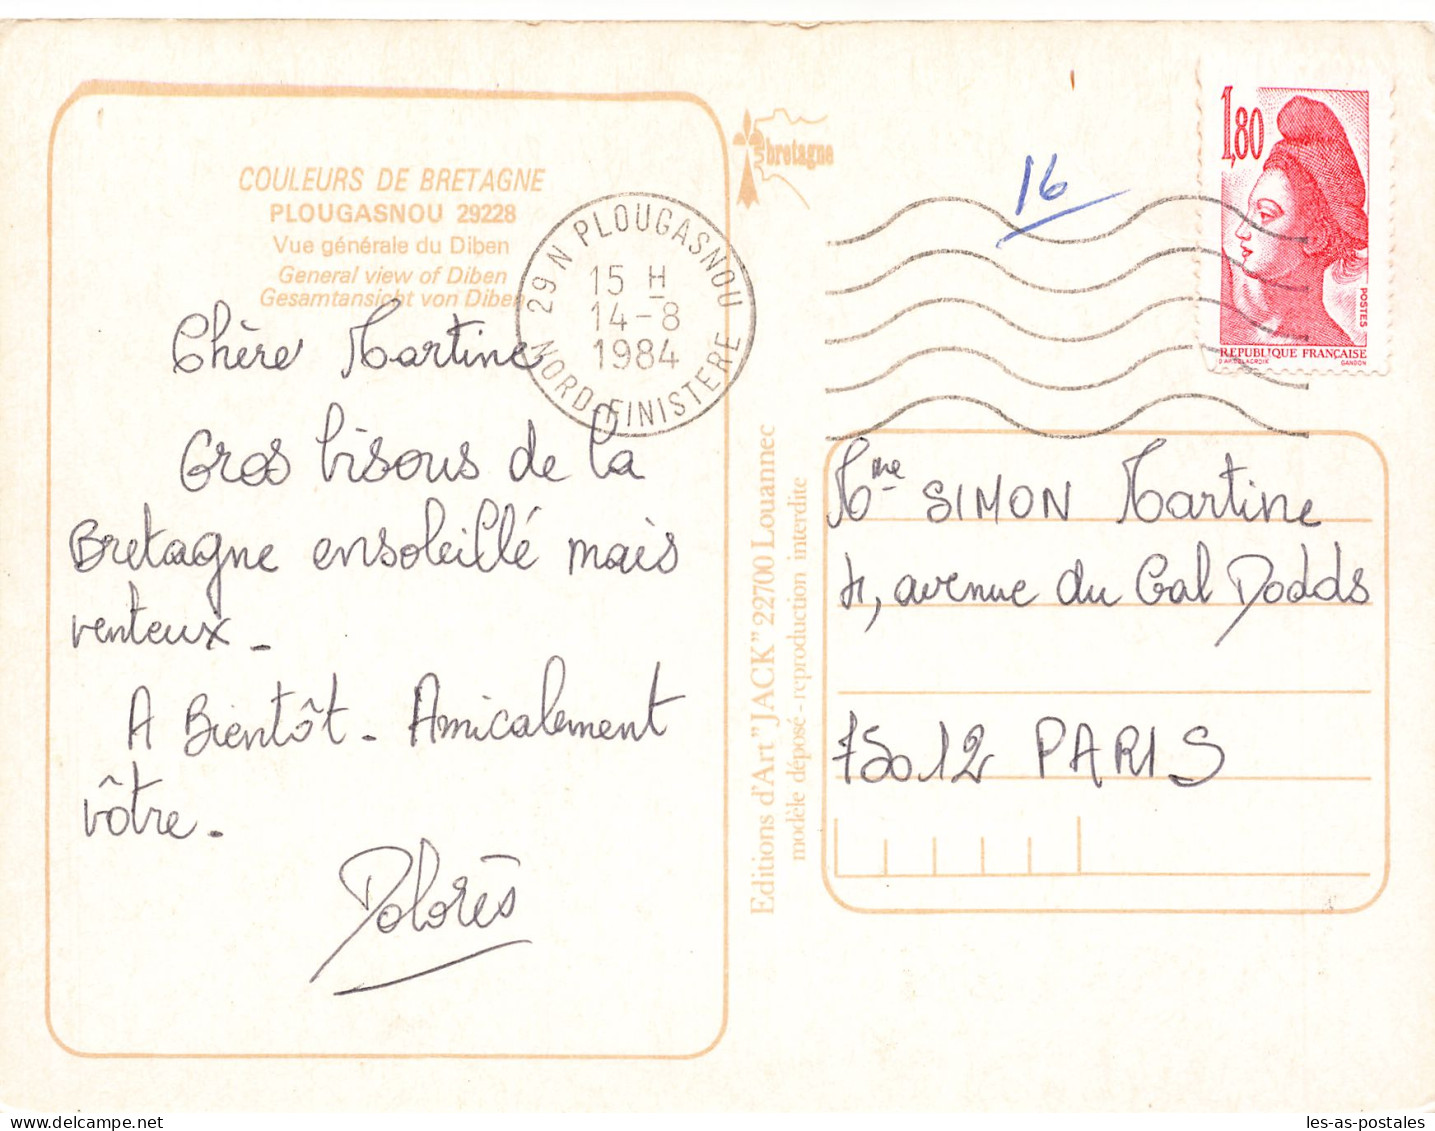 COULEURS DE BRETAGNE
PLOUGASNOU 29228
Vue générale du Diben
General view of Diben
Gesamtansicht von Diben
Chère Martine
Gros bisous de la
Bretagne ensoleillé mais
venteux -
A Bientôt - Amicalement
vôtre -
Dolorès
29 N PLOUGASNOU
15 H
14-8
1984
NORD-FINISTERE
bretagne
16
1,80
POSTES
REPUBLIQUE FRANÇAISE
D'APRES DELACROIX
GANDON
Editions d'Art "JACK" 22700 Louannec
modèle déposé - reproduction interdite
Mme SIMON Martine
4, avenue du Gal Dodds
75012 PARIS
les-as-postales